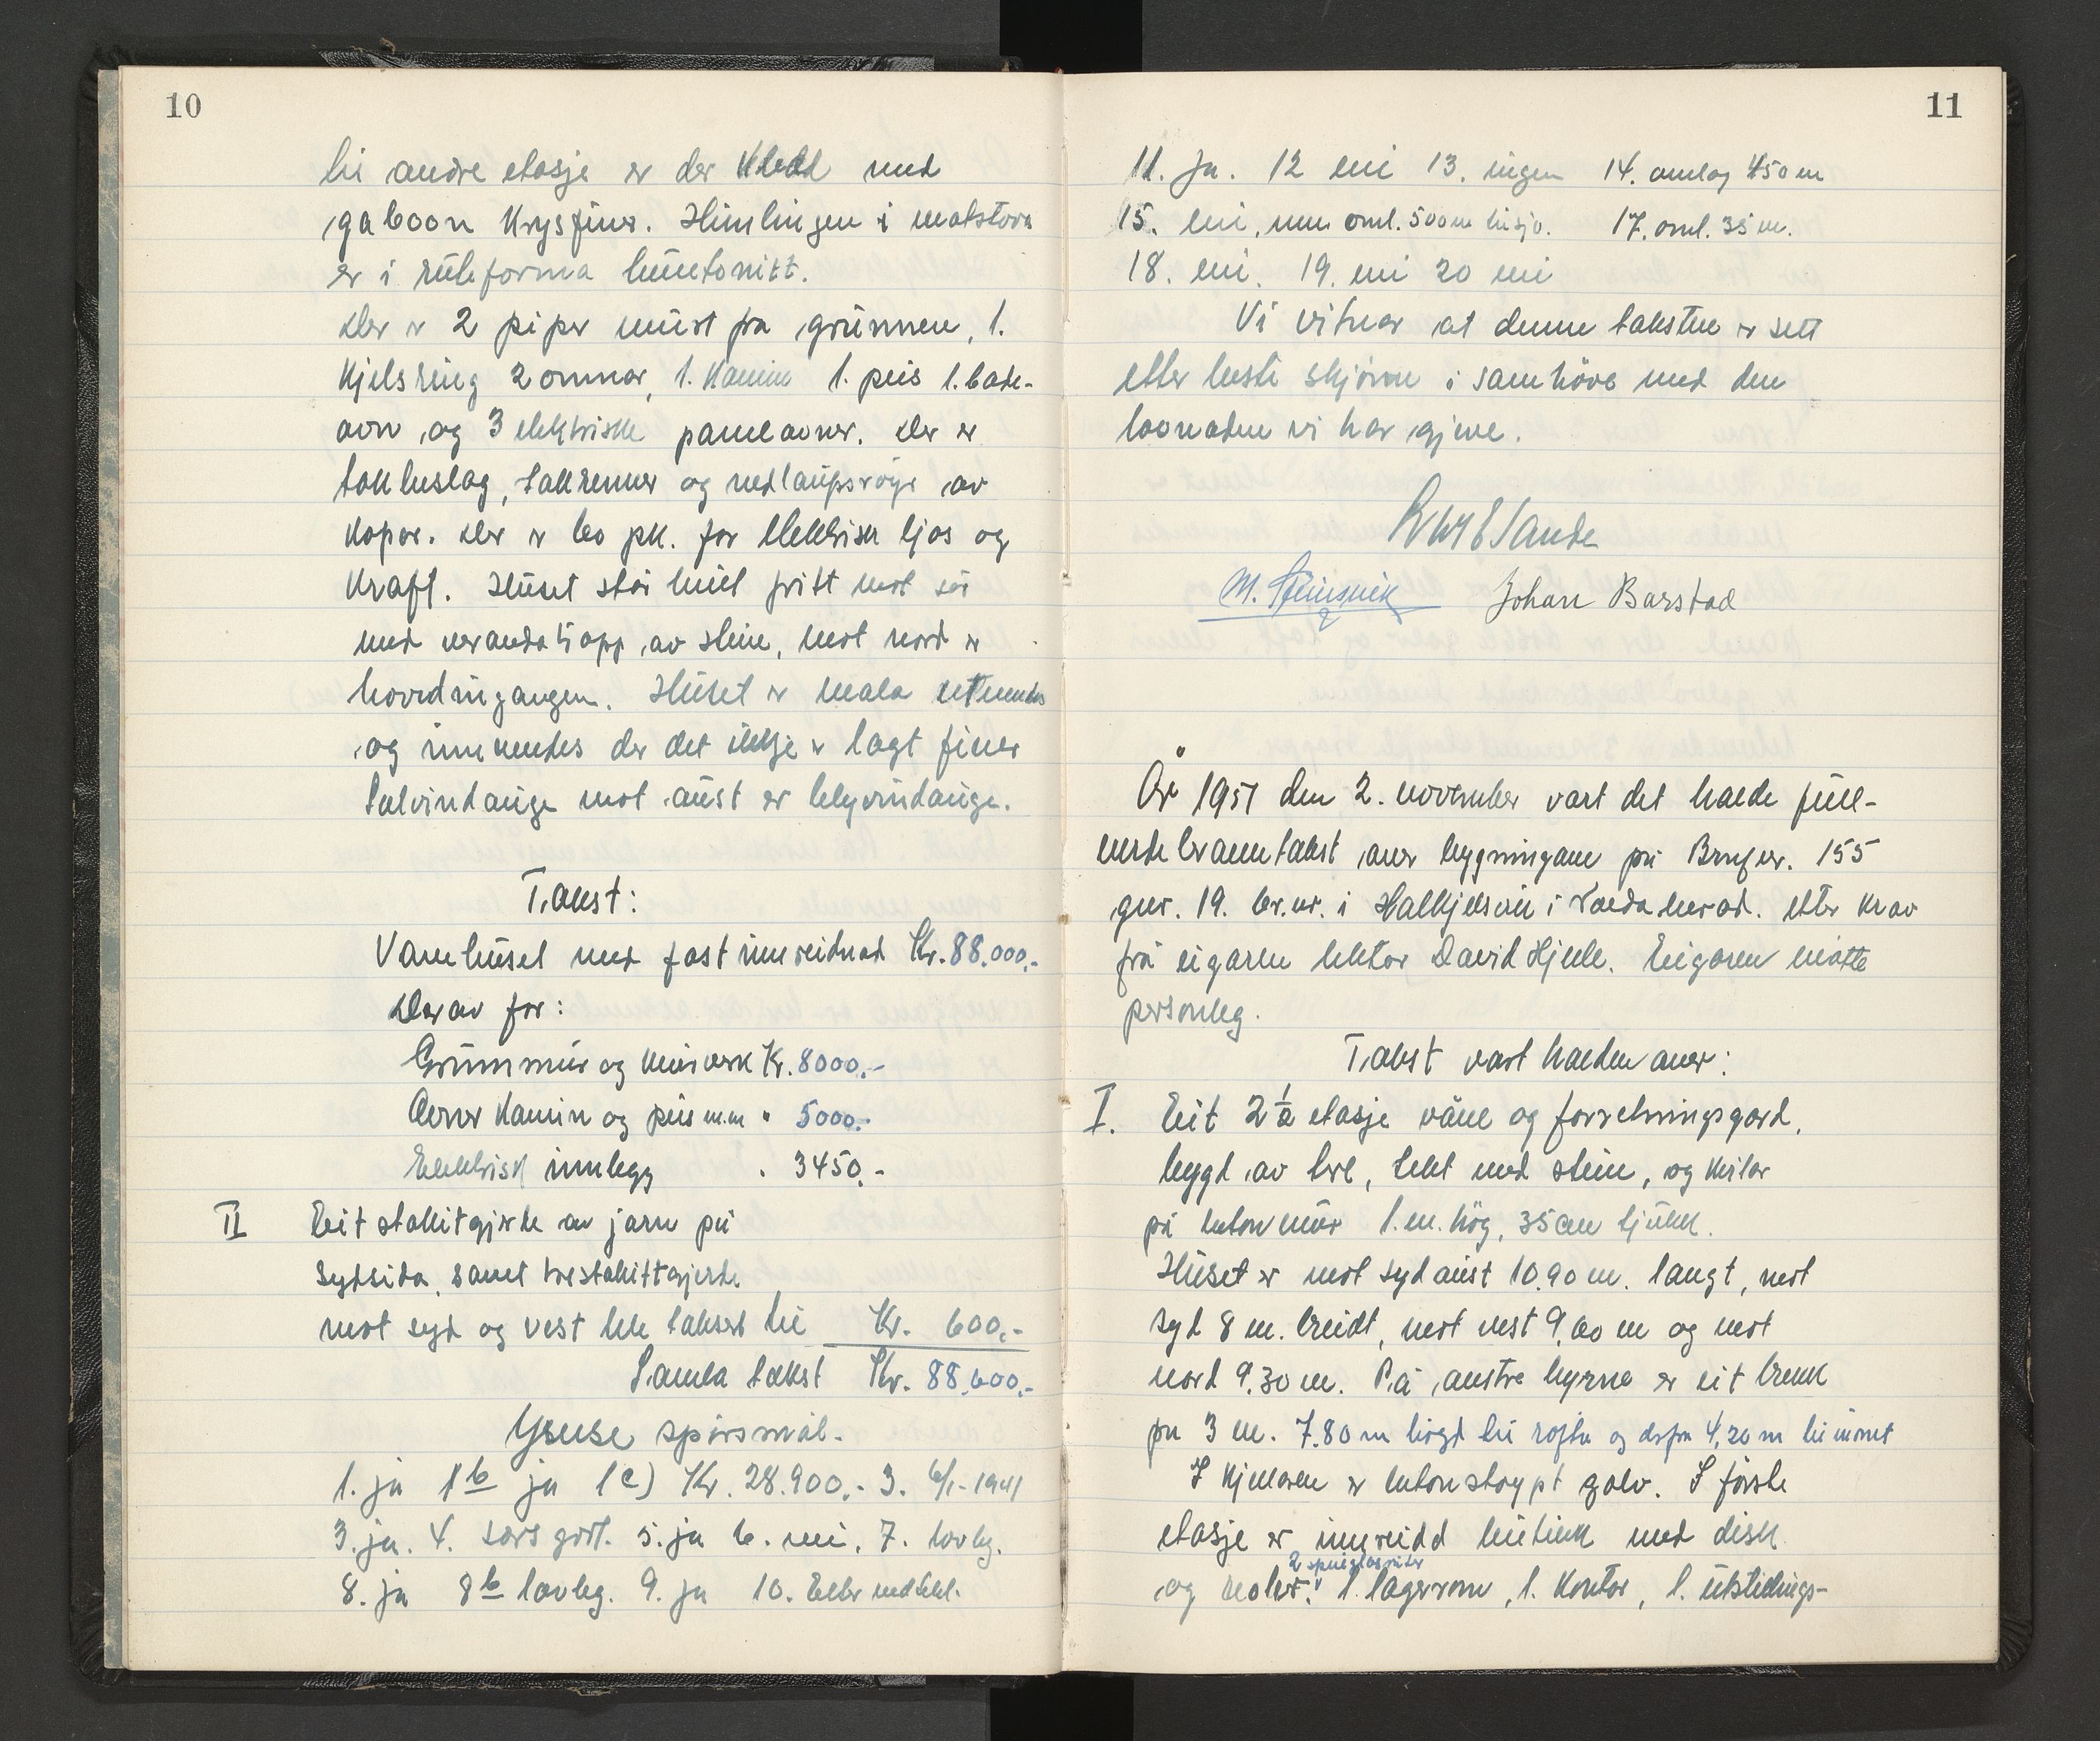 10
til andre etasje er der kledd med
gaboon krysfiner. Himlingen i matstova
er i ruteforma huntonitt.
Der er 2 piper murt fra grunnen, 1.
kjelsring 2 omnar, 1. Kamin 1. peis 1. bade-
ovn og 3 elektriske panelovner. Der er
takbeslag, takrenner og nedlaupsröyr av
kopar. Der er 60 pk. for elektrisk ljos og
kraft. Huset står heilt fritt mot sör
med verandatrapp av stein, mot nord er
hovedingangen. Huset er mala utvendes
og innvendes der det ikkje er lagt finer
mot aust er blyvindauge.
Takst:
Vånehuset med fast innreidnad Kr. 88.000,-
Derav for:
Grunnmur og murverk Kr. 8000.-
Ovner Kamin og peis m.m " 5000.-
Elektrisk innlegg . 3450.-
II Eit stakitgjerde av jarn på
sydsida, samt trestakittgjerde
mot syd og vest ble taksert til Kr. 600,-
Samla takst Kr. 88.600,-
Ymse spörsmål.
1. ja 1b ja 1c) Kr. 28.900,- 3. 6/1-1941
3. ja. 4. særs godt. 5. ja 6. nei. 7. lovleg.
8. ja 8b lovleg. 9. ja 10. Etter
11
11. ja. 12 nei 13. ingen 14. omlag 450 m
15. nei, men oml. 500 m til sjö. 17. oml. 35 m.
18. nei. 19. nei 20 nei
Vi vitnar at denne taksten er sett
etter beste skjönn i samhöve med den
lovnaden vi har gjeve.
M. Steinsvik Johan Barstad
År 1951 den 2. november vart det halde full-
verdebranntakst over bygningane på Brnfnr. 155
gnr. 19. br.nr. i Halkjelsvik i Volda herad. etter krav
frå eigaren lektor David Hjelle. Eigaren møtte
personleg.
Takst vart halden over:
I. Eit 2 1/2 etasje våne og forretningsgard,
bygd av tre, tekt med stein, og kvilar
på betonmur 1. m. hög, 35 cm tjukk.
Huset er mot sydaust 10.90 m. langt, mot
syd 8 m. breidt, mot vest 9,60 m og mot
nord 9.30 m. På austre hyrna er eit brekk
på 3 m. 7.80 m högd til röfte og derfra 4,20 m til mönet
I kjelaren er betonstøypt golv. I förste
etasje er innreidd butikk med disk
2 speilglasruter
og reoler. 1. lagerrom, 1. Kontor, 1. utstillings-